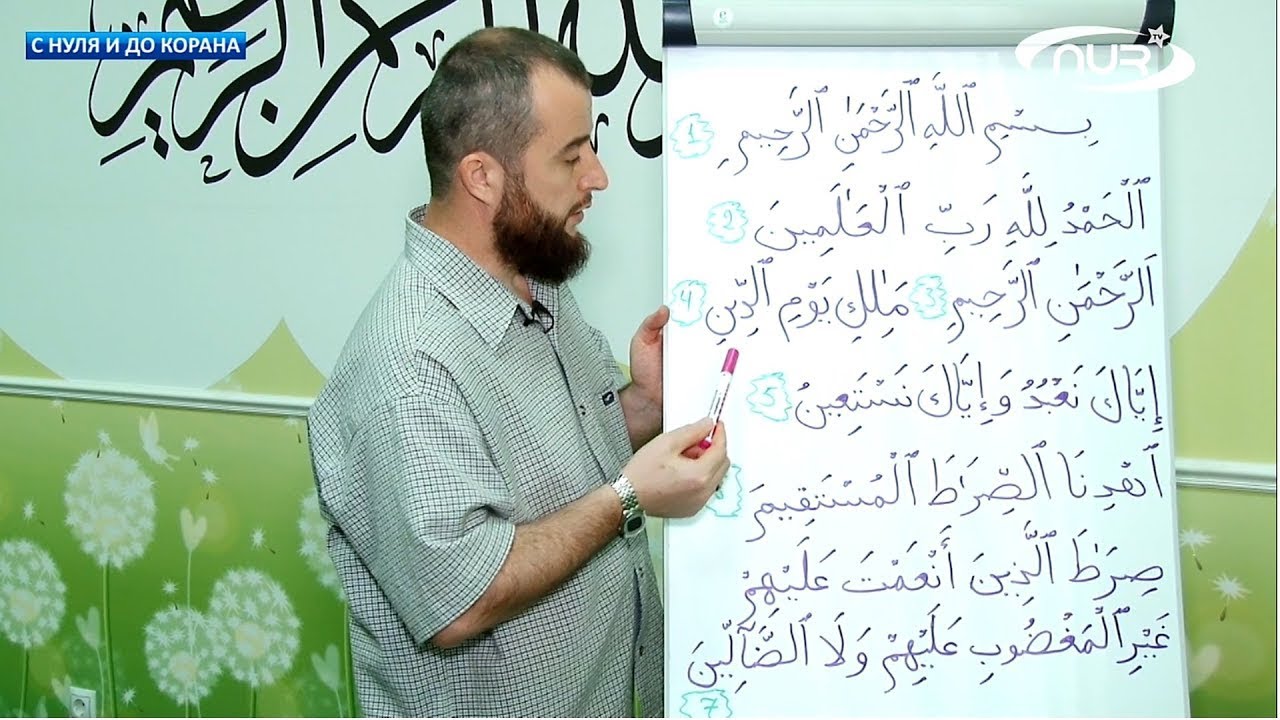 С НУЛЯ И ДО КОРАНА
NUR TV
بِسْمِ ٱللَّهِ ٱلرَّحْمَٰنِ ٱلرَّحِيمِ 1
ٱلْحَمْدُ لِلَّهِ رَبِّ ٱلْعَٰلَمِينَ 2
ٱلرَّحْمَٰنِ ٱلرَّحِيمِ 3 مَٰلِكِ يَوْمِ ٱلدِّينِ 4
إِيَّاكَ نَعْبُدُ وَإِيَّاكَ نَسْتَعِينُ 5
ٱهْدِنَا ٱلصِّرَٰطَ ٱلْمُسْتَقِيمَ
صِرَٰطَ ٱلَّذِينَ أَنْعَمْتَ عَلَيْهِمْ
غَيْرِ ٱلْمَغْضُوبِ عَلَيْهِمْ وَلَا ٱلضَّآلِّينَ
7